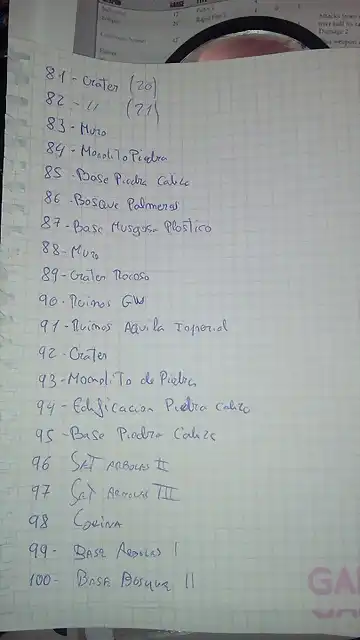 81 - Cráter (20)
82 - 11 (21)
83 - Muro
84 - Monolito Piedra
85 - Base Piedra Caliza
86 - Bosque Palmeras
87 - Base Musgosa Plástico
88 - Muro
89 - Cráter Rocoso
90 - Ruinas GW
91 - Ruinas Aquila Imperial
92 - Cráter
93 - Monolito de Piedra
94 - Edificación Piedra Caliza
95 - Base Piedra Caliza
96 SET ARBOLES II
97 SET ARBOLES III
98 COLINA
99 - BASE ARBOLES I
100 - BASE BOSQUE II
GA